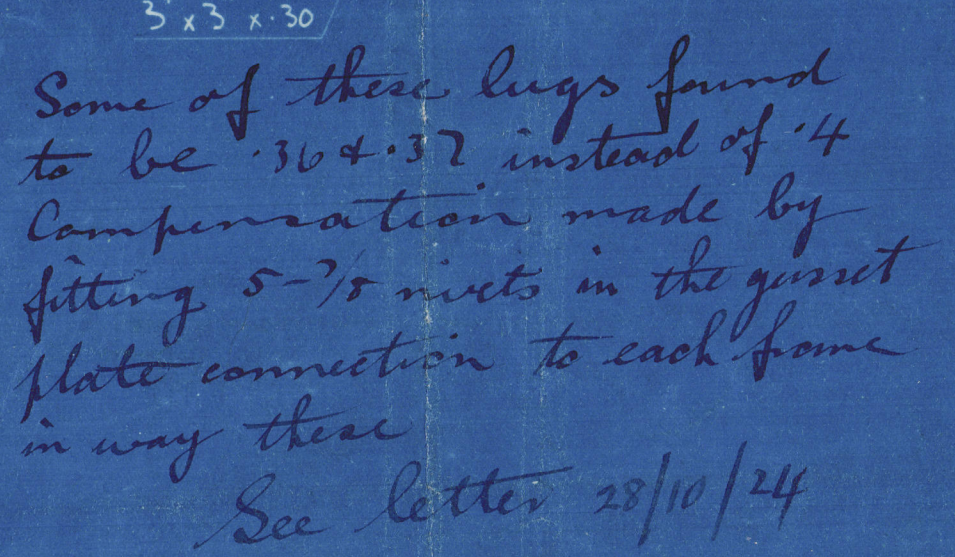 3" x 3 x .30
Some of these lugs found
to be .36 & .37 instead of .4
Compensation made by
fitting 5-7/8 rivets in the gusset
plate connection to each frame
in way these
See letter 28/10/24